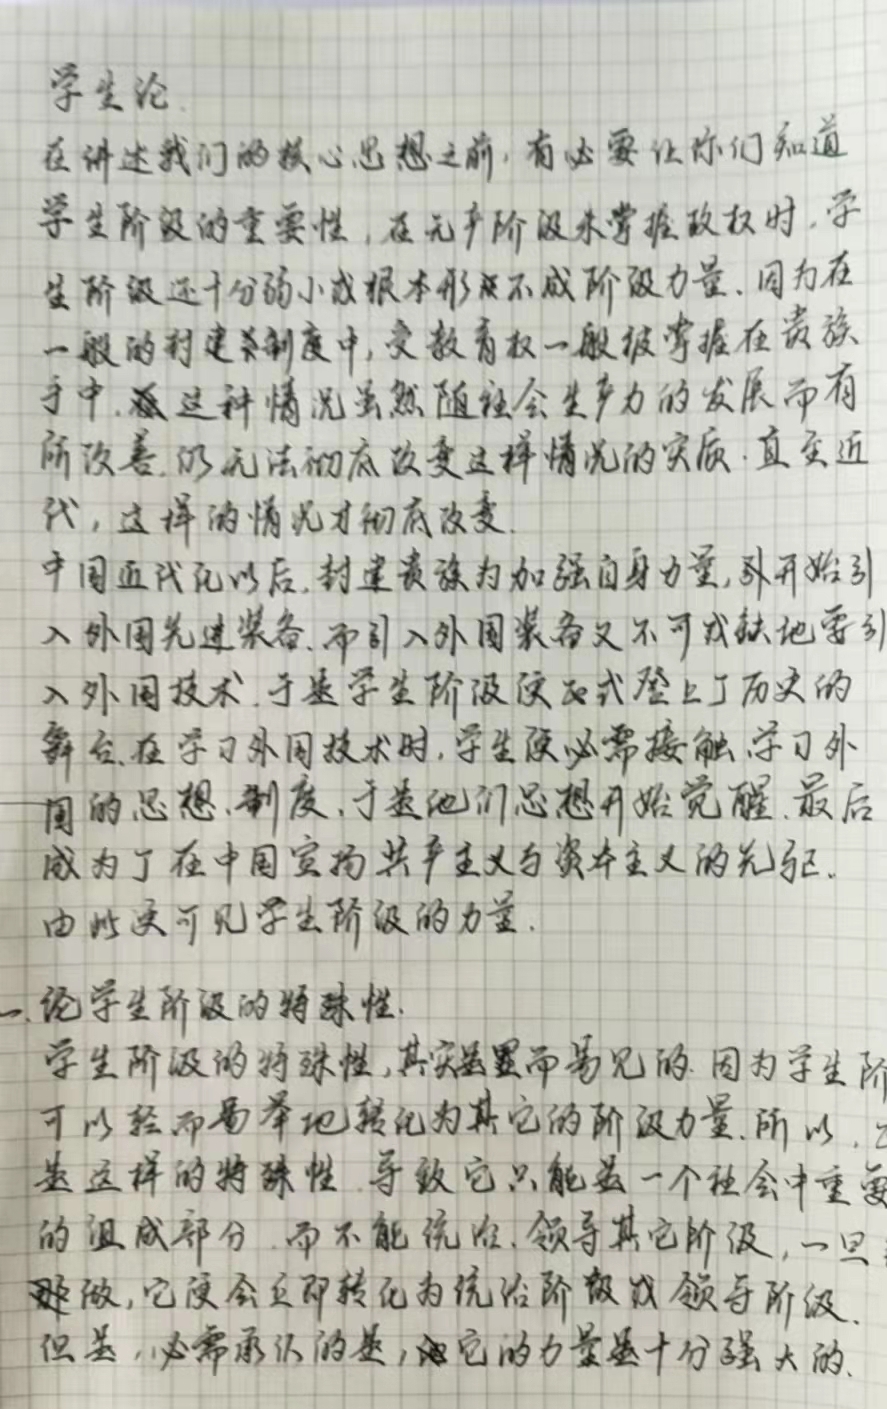 学生论.
在讲述我们的核心思想之前，有必要让你们知道
学生阶级的重要性，在无产阶级未掌握政权时，学
生阶级还十分弱小或根本形不成阶级力量.因为在
一般的封建制度中,受教育权一般被掌握在贵族
手中.这种情况虽然随社会生产力的发展而有
所改善.仍无法彻底改变这样情况的实质.直至近
代，这样的情况才彻底改变.
中国近代化以后.封建贵族为加强自身力量,开始引
入外国先进装备.而引入外国装备又不可或缺地要引
入外国技术.于是学生阶级便正式登上了历史的
舞台.在学习外国技术时,学生便必需接触、学习外
国的思想、制度,于是他们思想开始觉醒.最后
成为了在中国宣扬共产主义与资本主义的先驱.
由此更可见学生阶级的力量.
一.论学生阶级的特殊性.
学生阶级的特殊性,其实是显而易见的.因为学生阶
可以轻而易举地转化为其它的阶级力量.所以,
是这样的特殊性.导致它只能是一个社会中重要
的组成部分.而不能统治、领导其它阶级,一旦
那做,它便会立即转化为统治阶级或领导阶级.
但是,必需承认的是,它的力量是十分强大的.